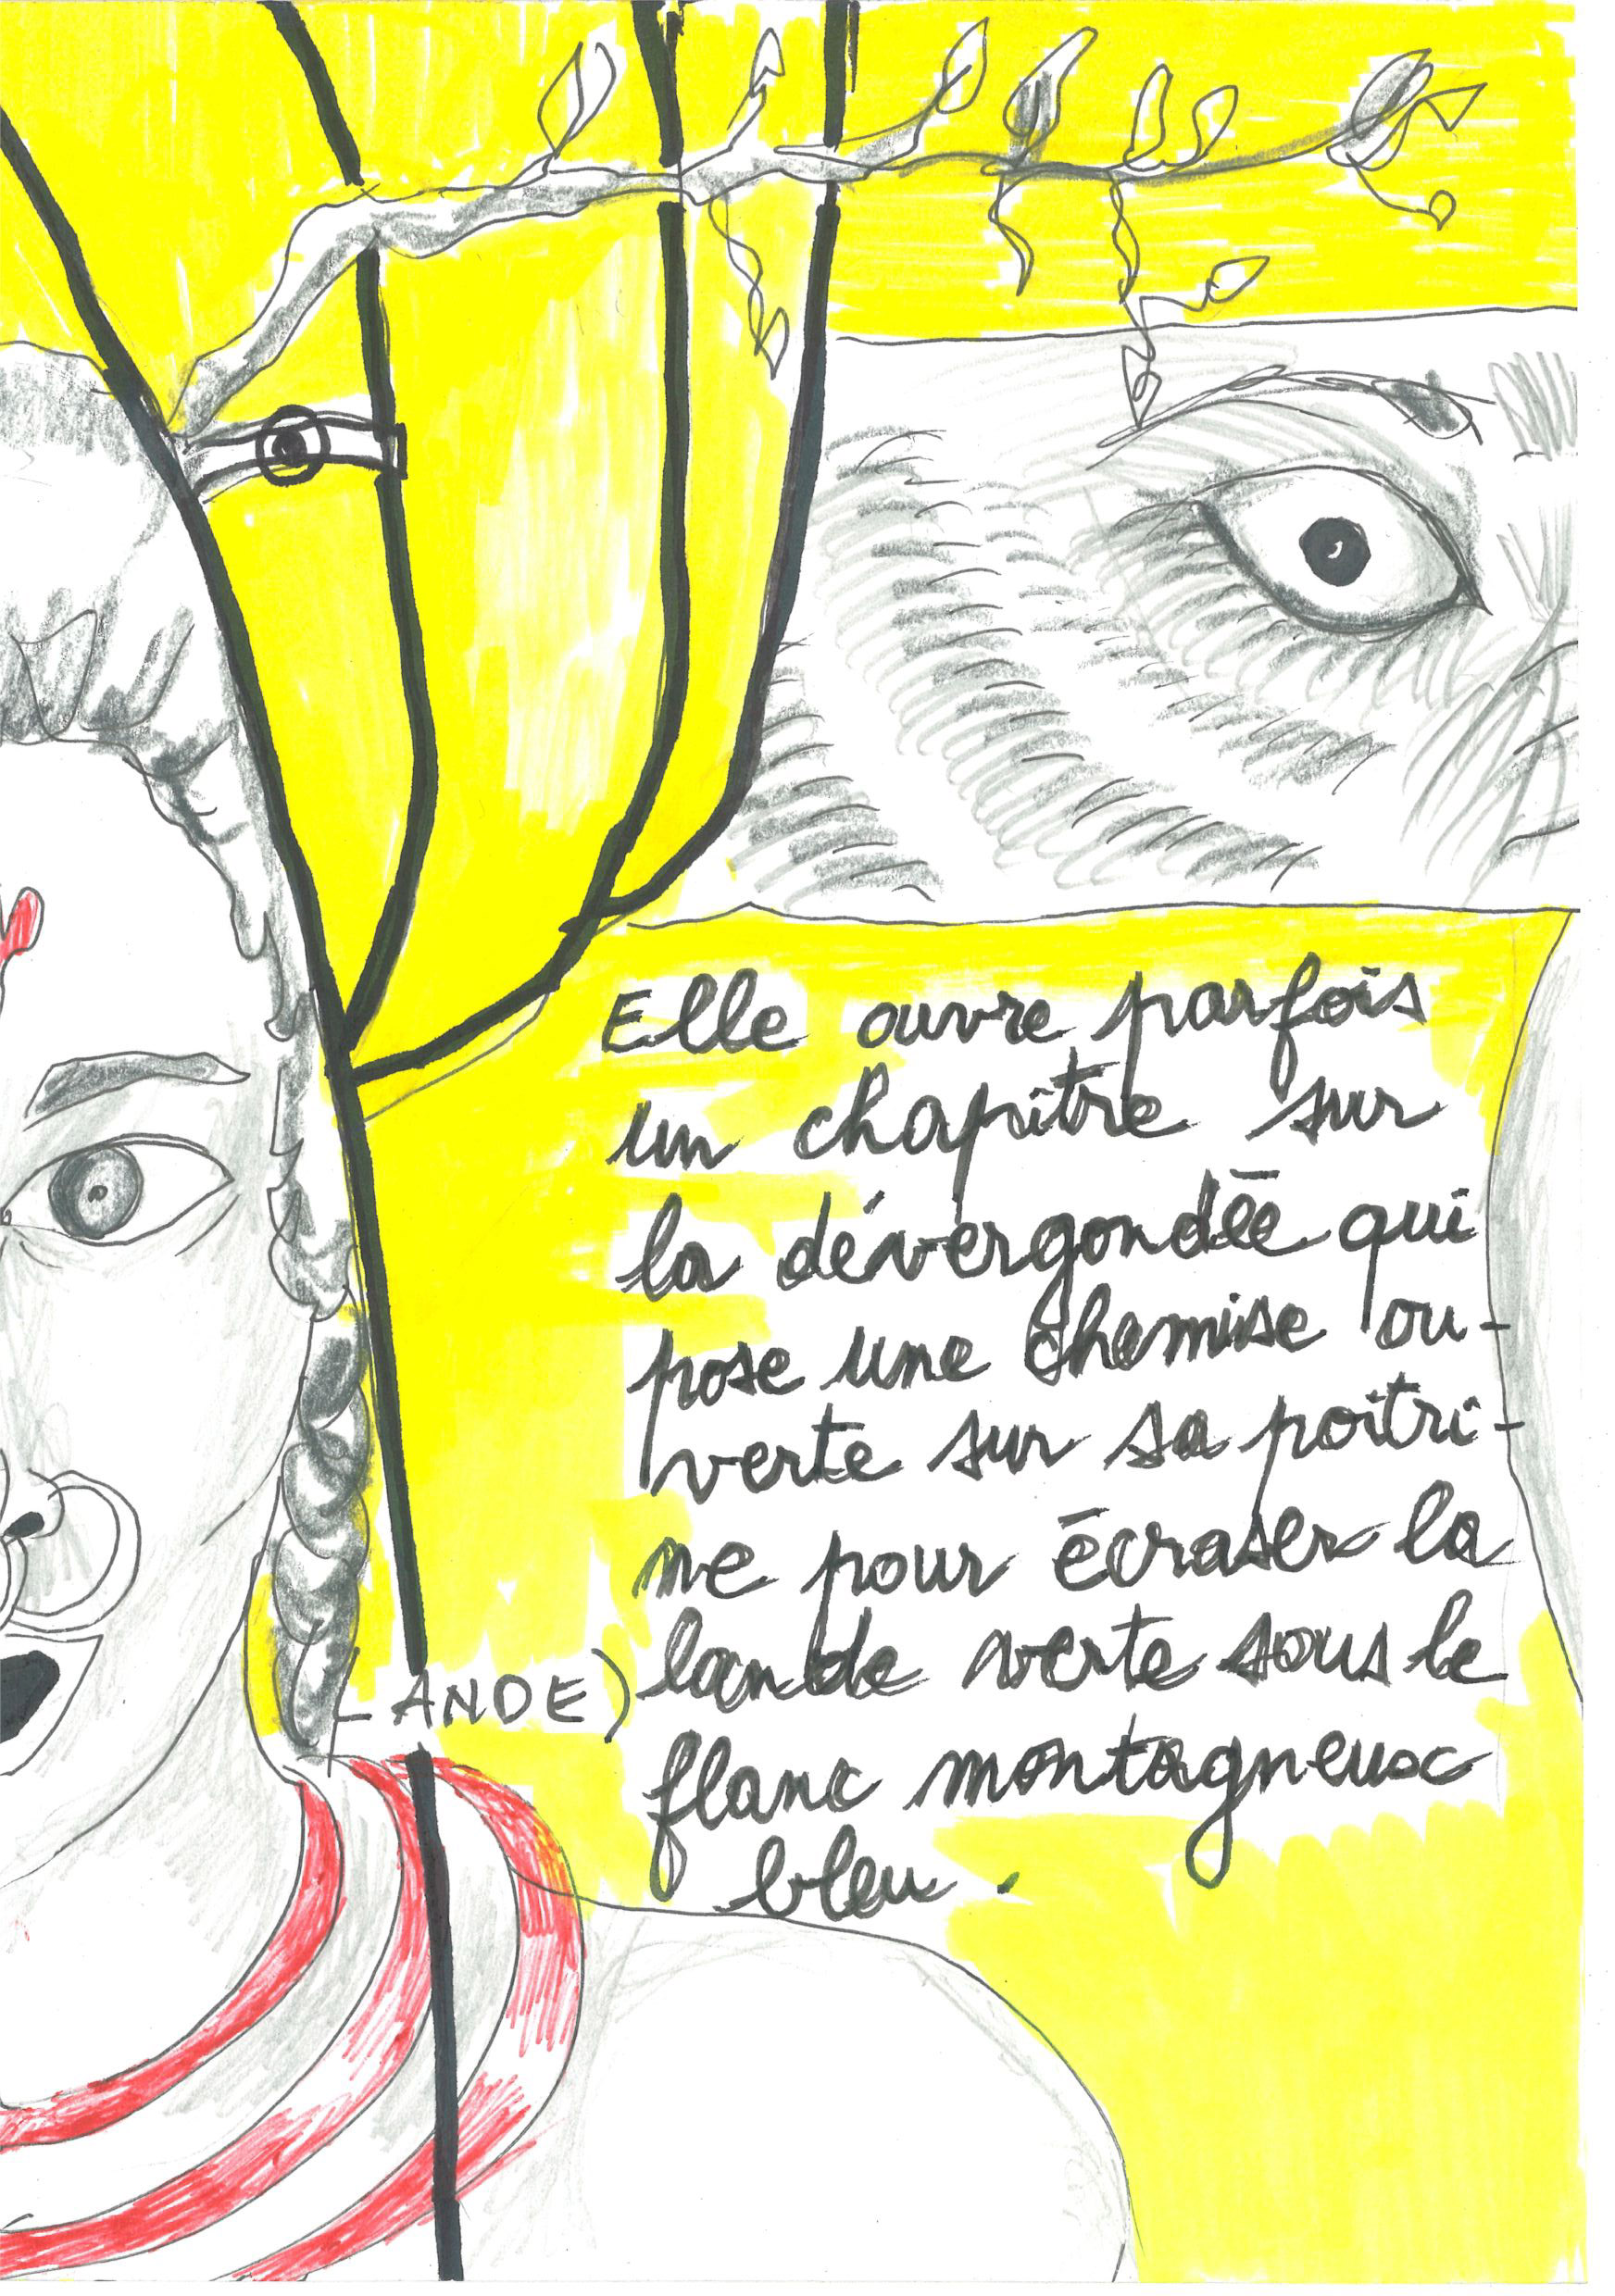 Elle ouvre parfois
un chapître sur
la dévergondée qui
pose une chemise ou-
verte sur sa poitri-
ne pour écraser la
LANDE) lande verte sous le
flanc montagneux
bleu.